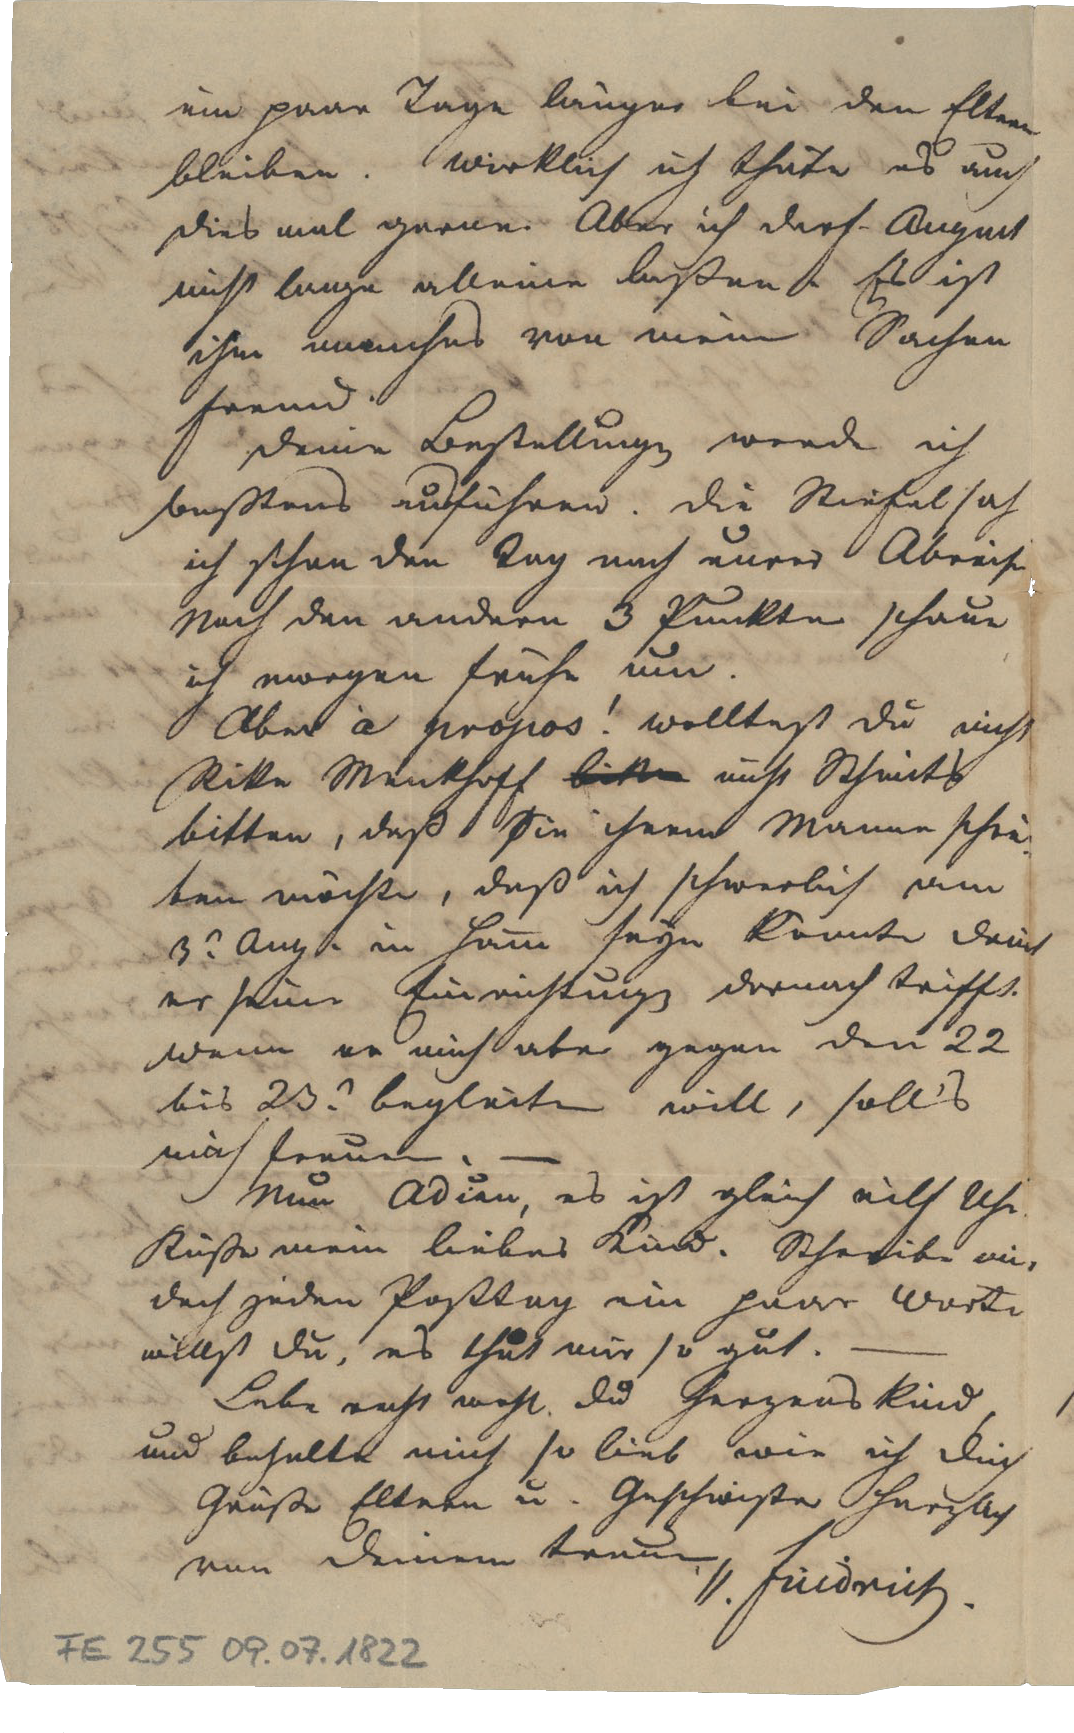 ein paar Tage länger bei den Eltern
bleiben. Wirklich ich thäte es auch
dies mal gerne. Aber ich darf August
nicht lange alleine laßen. Es ist
ihm manches von mein Sachen
fremd.
Deine Bestellung werde ich
bestens ausführen. Die Stiefel sah
ich schon den Tag nach eurer Abreise
Nach den andern 3 Punkten schaue
ich morgen frühe um.
Aber à propos! wolltest Du nicht
Rike Menkhoff nicht
bitten, daß Sie ihrem Manne schrei-
ben möchte, daß ich schwerlich am
3. Aug. in Ham̄ seyn könnte damit
er seine Einrichtung darnach trifft.
Wenn er mich aber gegen den 22
bis 23. begleiten will, soll's
mich freuen. —
Nun Adieu, es ist gleich eilf Uhr.
Küße mein liebes Kind. Schreibe mir
doch jeden Posttag ein paar Worte
willst Du, es thut mir so gut. —
Lebe recht wohl Du Herzenskind,
und behalte mich so lieb wie ich Dich
Grüße Eltern u. Geschwister herzlich
von Deinem treuen
Friedrich.
FE 255 09.07.1822